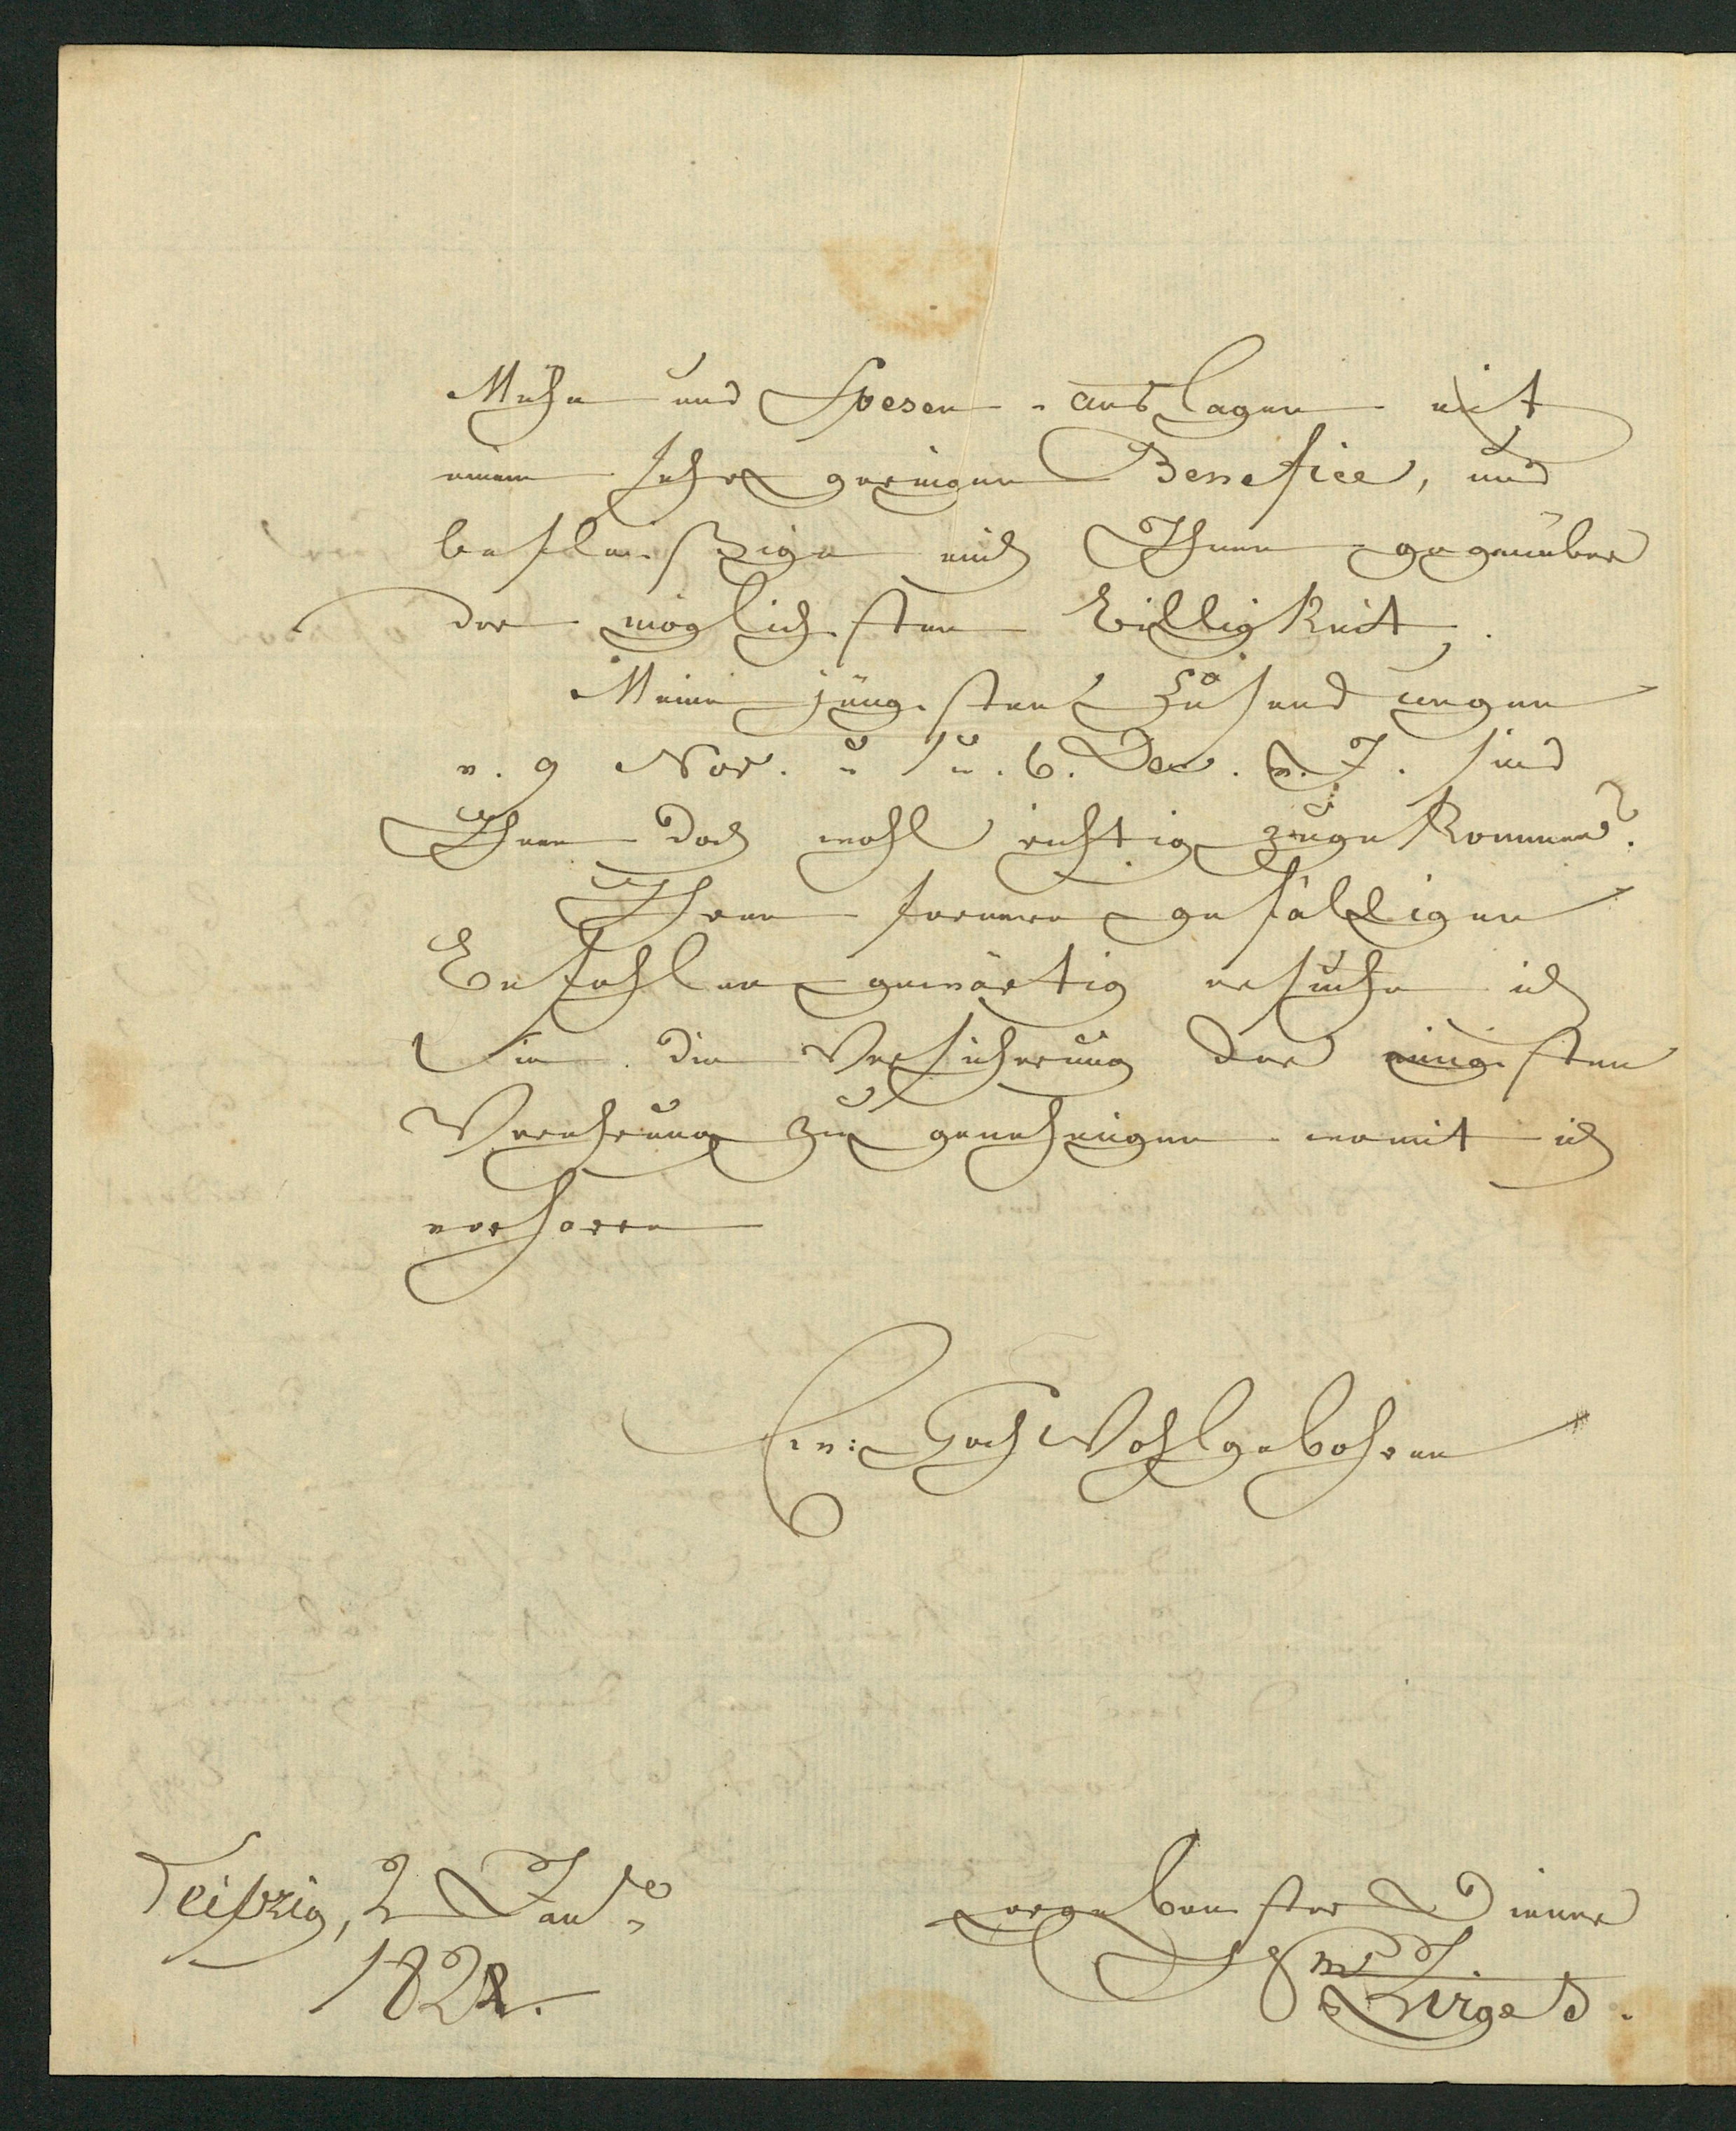 Mühe und Spesen-auslagen mit
einem sehr geringen Benefice, und
befleißige mich Ihnen gegenüber
der möglichsten Billigkeit.
Meine jüngsten Zusendungen
v. 9 Nov. u 1 u. 6. Dec. v. J. sind
Ihnen doch wohl richtig zugekommen?
Ihren fernern gefälligen
Befehlen gewärtig ersuche ich
Sie die Versicherung der innigsten
Verehrung zu genehmigen womit ich
verharre
Ew: HochWohlgebohren
Leipzig, 2 Janr
182
ergebenster Diener
Zirges.